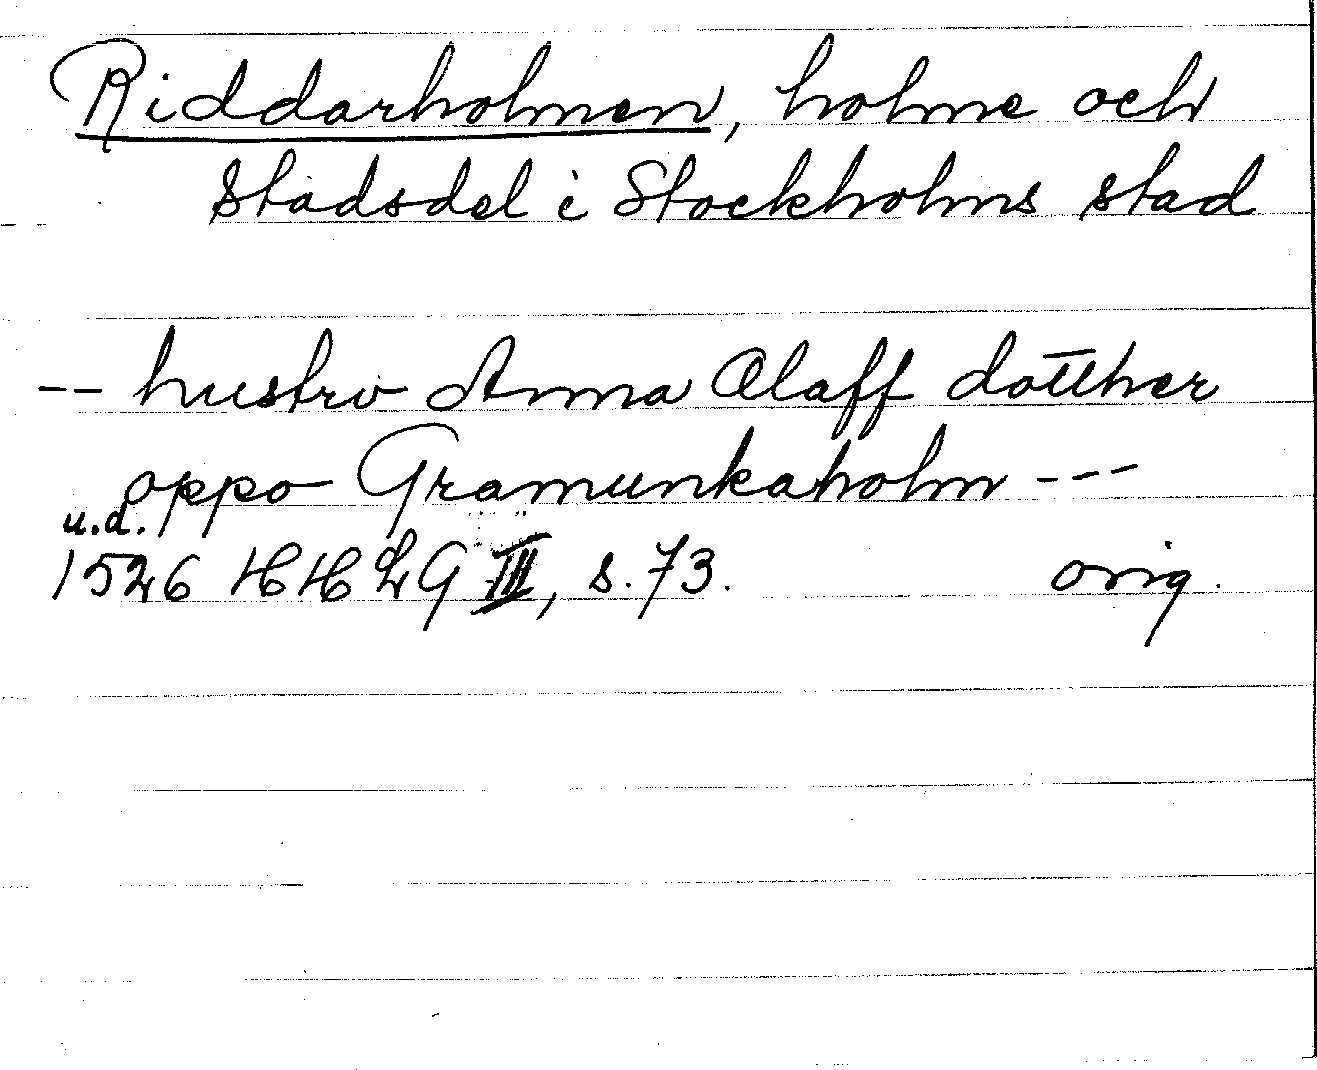 Riddarholmen, holme och
stadsdel i Stockholms stad
-- hustrv Anna Olaff dotther
oppo Gramunkaholm --
u.d.
1526 HHLG III, s. 73. orig.